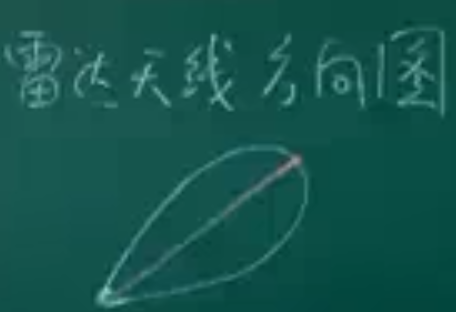 雷达天线方向图